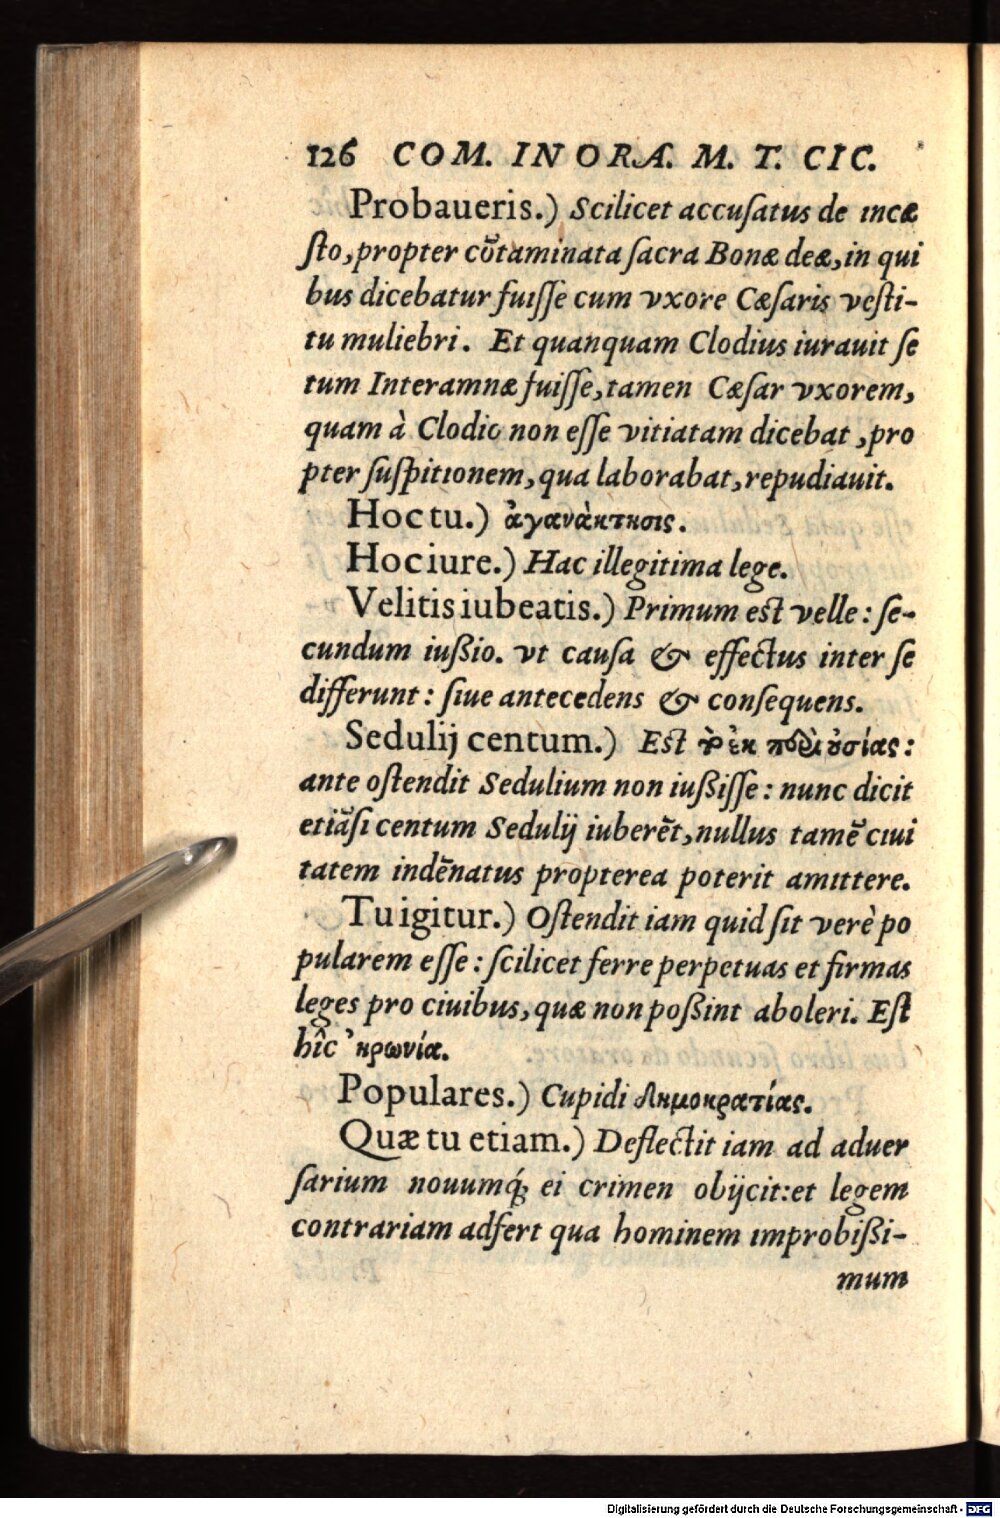 126 COM. IN ORA. M. T. CIC.
Probaueris.) Scilicet accuſatus de incæ
ſto, propter cõtaminata ſacra Bonæ deæ, in qui
bus dicebatur fuiſſe cum vxore Cæſaris veſti-
tu muliebri. Et quanquam Clodius iurauit ſe
tum Interamnæ fuiſſe, tamen Cæſar vxorem,
quam à Clodio non eſſe vitiatam dicebat, pro
pter ſuſpitionem, qua laborabat, repudiauit.
Hoc tu.) ἀγανάκτησις.
Hoc iure.) Hac illegitima lege.
Velitis iubeatis.) Primum est velle: ſe-
cundum iußio. vt cauſa & effectus inter ſe
differunt: ſiue antecedens & conſequens.
Sedulij centum.) Est ἐκ
ante oſtendit Sedulium non iußiſſe: nunc dicit
etiãſi centum Sedulij iuberẽt, nullus tamẽ ciui
tatem indẽnatus propterea poterit amittere.
Tu igitur.) Oſtendit iam quid ſit verè po
pularem eſſe: ſcilicet ferre perpetuas et firmas
leges pro ciuibus, quæ non poßint aboleri. Eſt
hîc ἠρωνία.
Populares.) Cupidi Δημοκρατίας.
Quæ tu etiam.) Deflectit iam ad aduer
ſarium nouumq́; ei crimen obijcit: et legem
contrariam adfert qua hominem improbißi-
mum
Digitalisierung gefördert durch die Deutsche Forschungsgemeinschaft - DFG